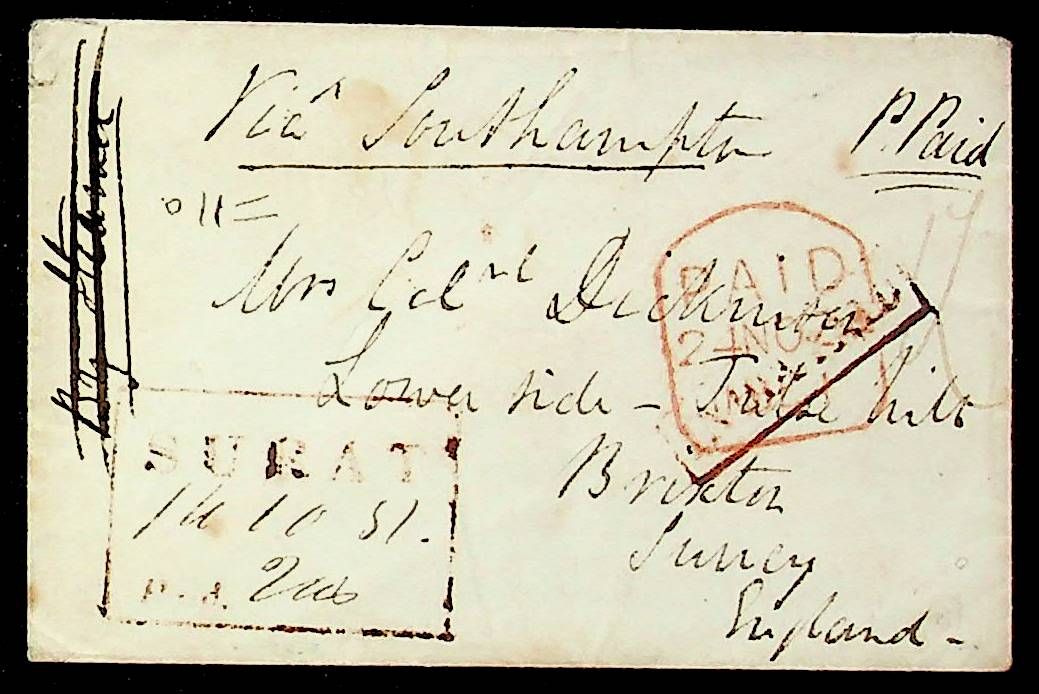 Viâ Southampton
P. Paid
Mrs Colnel Dickinson
Lower side - Tulse hill
Brixton
Surrey
England -
PAID
SURAT
10 51.
P. d.